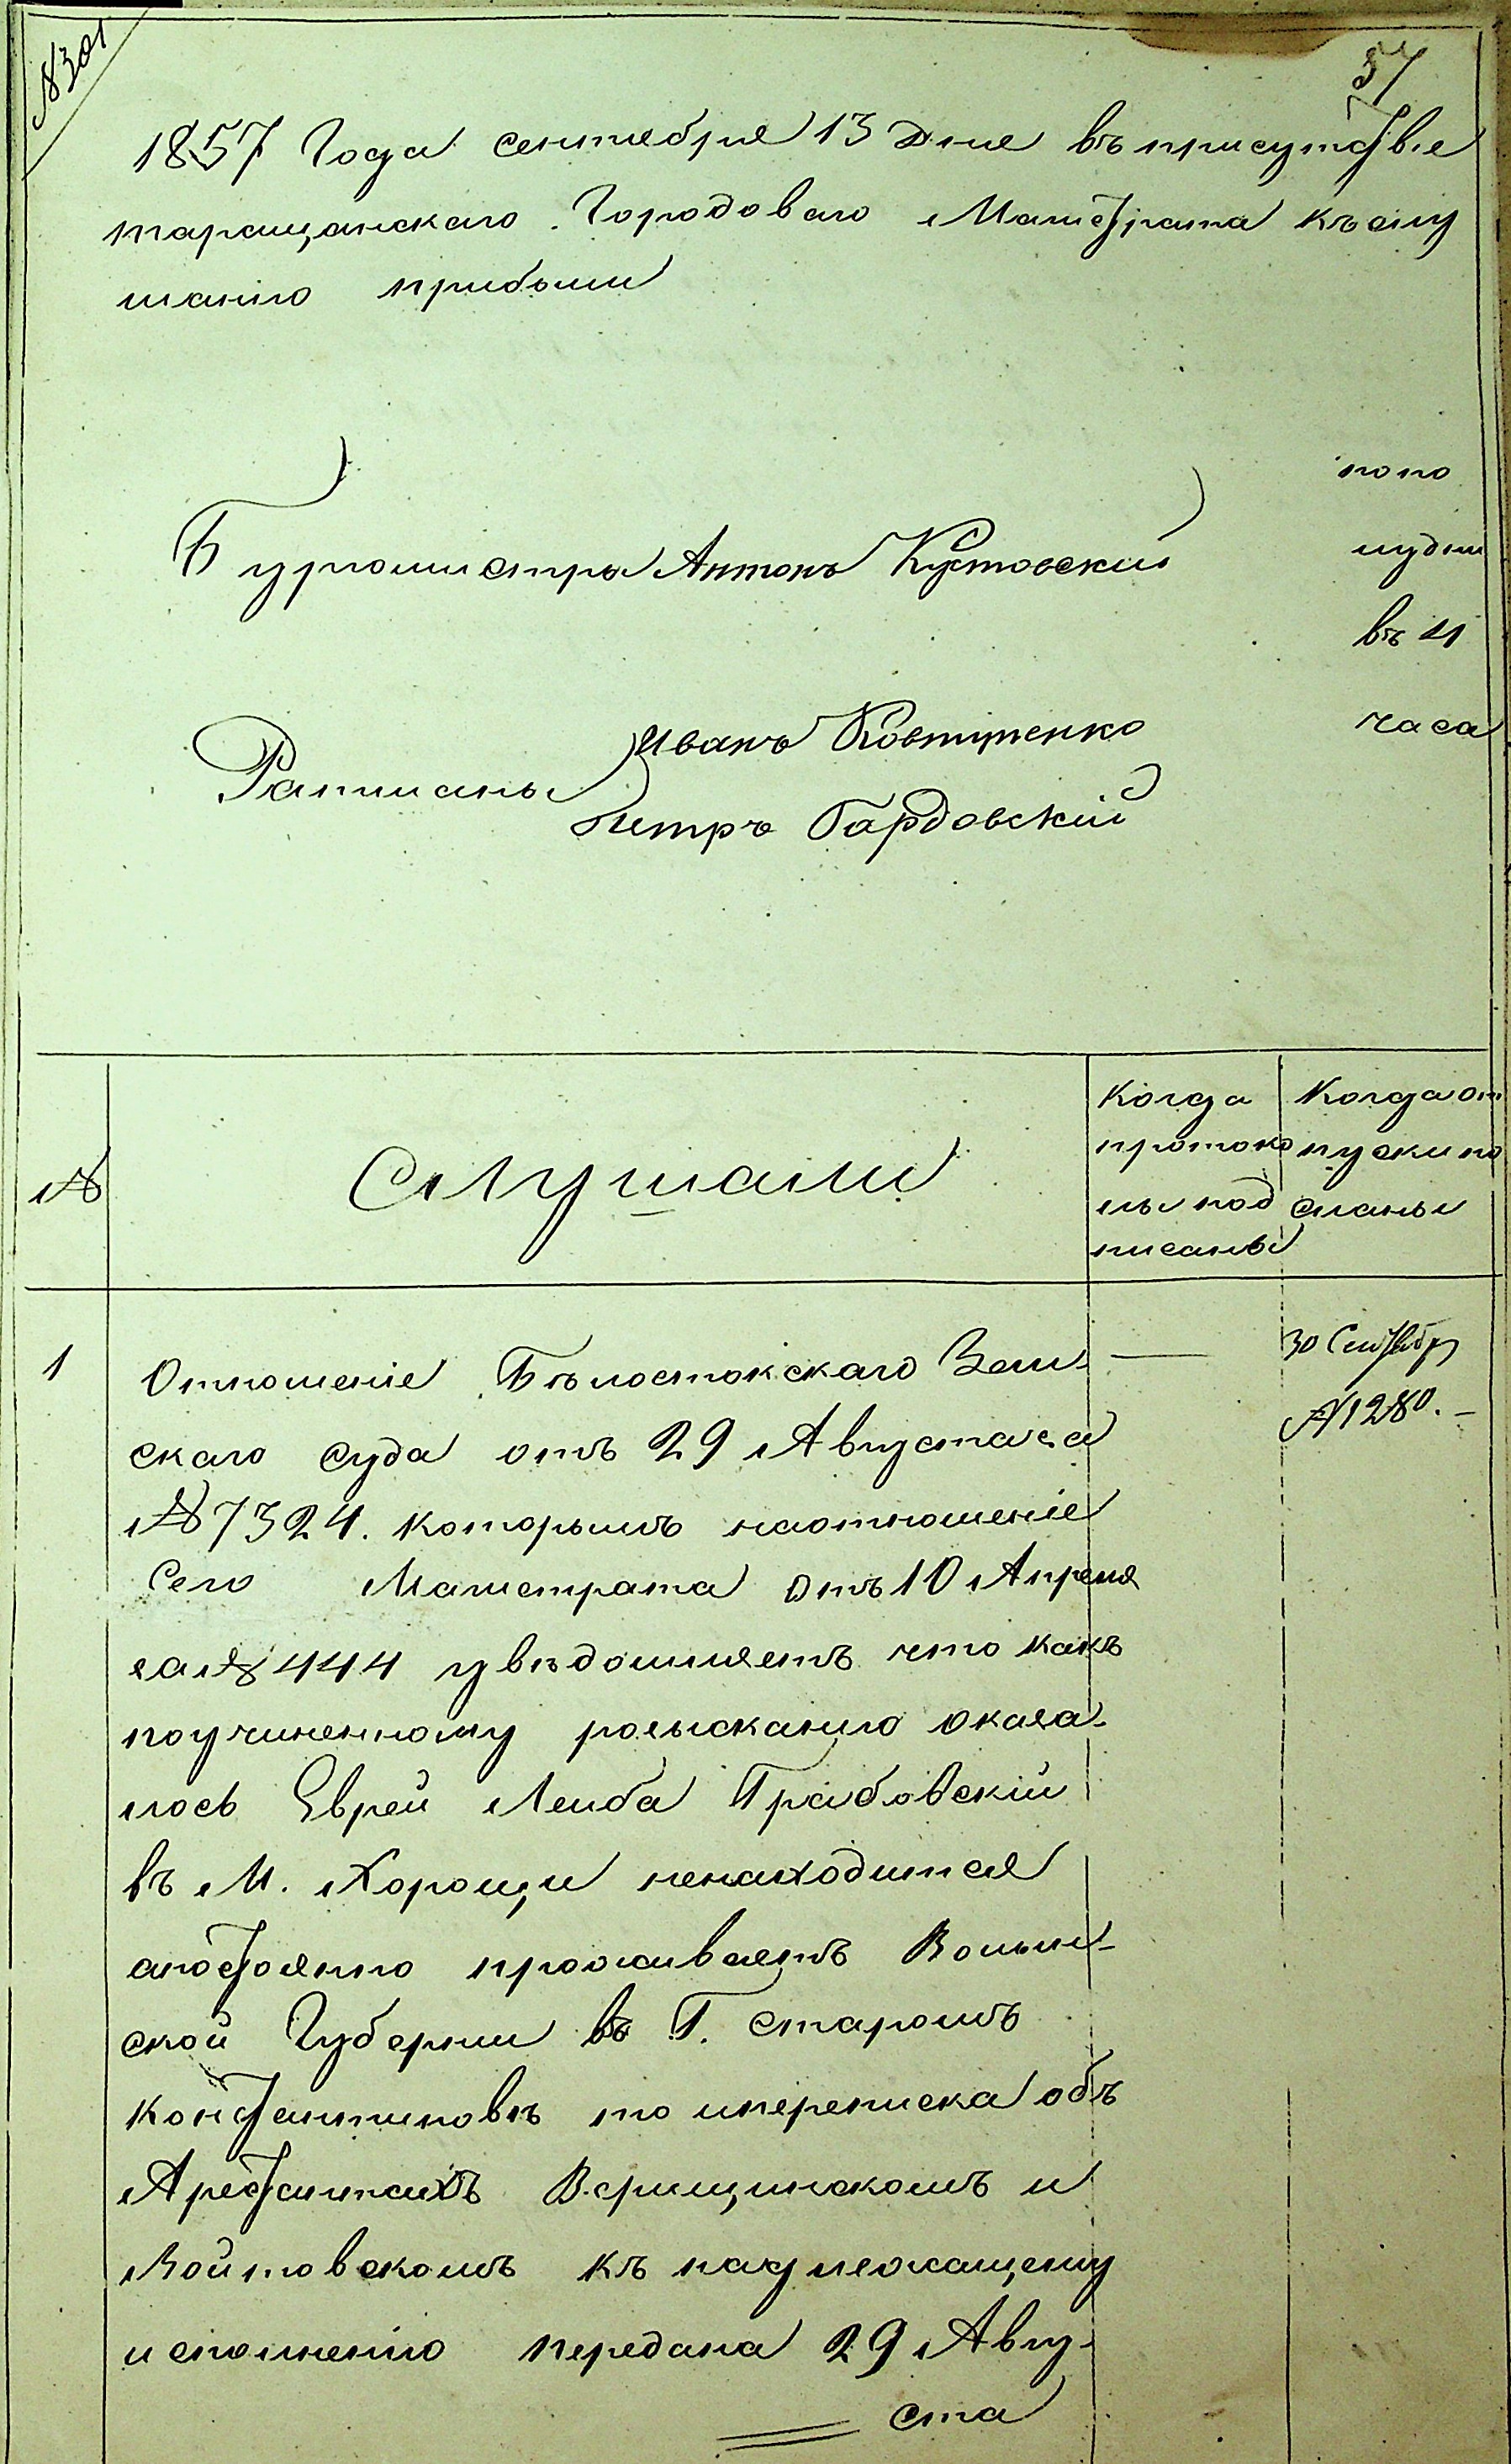 №301
57
1857 Года сентября 13 Дня въ присутствіе
таращанскаго Городоваго Магистрата къ слу
шанію прибыли
попо
лудни
въ 11
часа
Бургомистръ Антонъ Кустовскій
Иванъ Ковтуненко
Ратманы
Петръ Гардовскій
№
Слушали
Когда
протоко
лы под
писаны
Когда от
пуски по
сланы
1
Отношеніе Бѣлостокскаго Зем-
скаго суда отъ 29 Августа за
№ 7324. которымъ наотношеніе
сего Магистрата отъ 10 Апреля
за № 444 увѣдомляетъ что какъ
поучиненному розысканію оказа-
лось Еврей Леиба Грабовскій
въ М. Хорощи ненаходится
апостоянно проживаетъ Волын-
ской Губерніи въ Г. Старомъ
Константиновѣ то ипереписка объ
Арестантахъ Верищинскомъ и
Войтовскомъ къ надлежащему
исполненію передана 29 Авгу-
ста
30 Сентября
№1280.